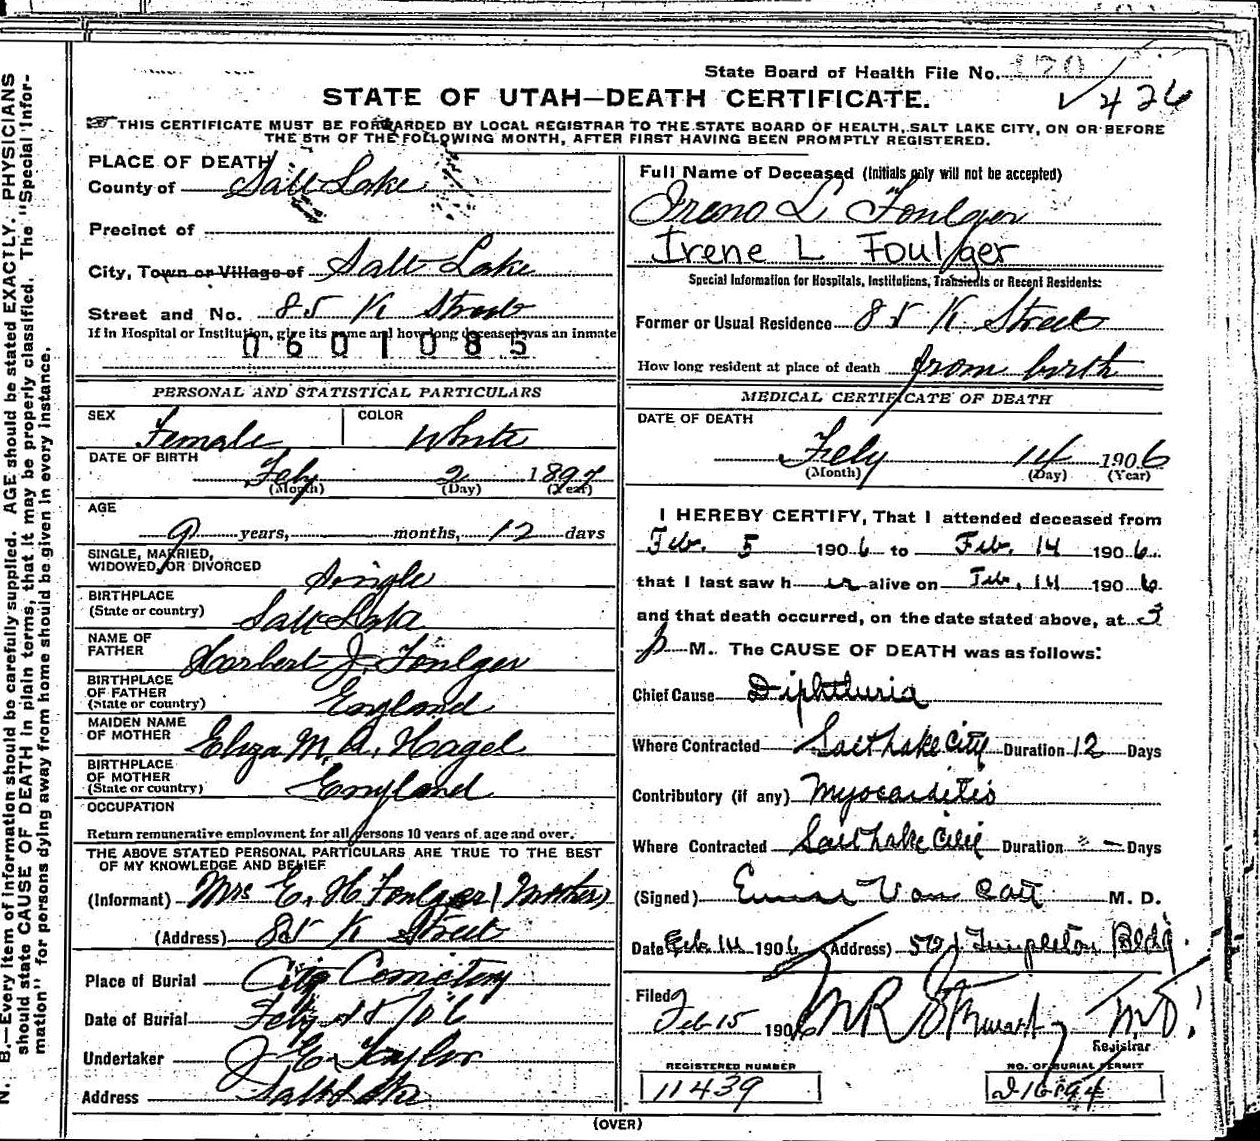 State Board of Health File No. 170
426
STATE OF UTAH—DEATH CERTIFICATE.
THIS CERTIFICATE MUST BE FORWARDED BY LOCAL REGISTRAR TO THE STATE BOARD OF HEALTH, SALT LAKE CITY, ON OR BEFORE
THE 5TH OF THE FOLLOWING MONTH, AFTER FIRST HAVING BEEN PROMPTLY REGISTERED.
PLACE OF DEATH
County of Salt Lake
Precinct of
City, Town or Village of Salt Lake
Street and No. 85 K Street
If in Hospital or Institution, give its name and how long deceased was an inmate
0601085
PERSONAL AND STATISTICAL PARTICULARS
SEX Female COLOR White
DATE OF BIRTH
Feby 2 1897
(Month) (Day) (Year)
AGE
9 years, months, 12 days
SINGLE, MARRIED,
WIDOWED, OR DIVORCED Single
BIRTHPLACE
(State or country) Salt Lake
NAME OF
FATHER Herbert J. Foulger
BIRTHPLACE
OF FATHER
(State or country) England
MAIDEN NAME
OF MOTHER Eliza M. A. Hagel
BIRTHPLACE
OF MOTHER
(State or country) England
OCCUPATION
Return remunerative employment for all persons 10 years of age and over.
THE ABOVE STATED PERSONAL PARTICULARS ARE TRUE TO THE BEST
OF MY KNOWLEDGE AND BELIEF
(Informant) Mrs E. H Foulger (Mother)
(Address) 85 K Street
Place of Burial City Cemetery
Date of Burial Feby 15/06
Undertaker J E Taylor
Address Salt Lake
Full Name of Deceased (Initials only will not be accepted)
Irene L Foulger
Irene L Foulger
Special Information for Hospitals, Institutions, Transients or Recent Residents:
Former or Usual Residence 85 K Street
How long resident at place of death from birth
MEDICAL CERTIFICATE OF DEATH
DATE OF DEATH
Feby 14 1906
(Month) (Day) (Year)
I HEREBY CERTIFY, That I attended deceased from
Feb. 5 1906 to Feb. 14 1906.
that I last saw her alive on Feb. 14 1906
and that death occurred, on the date stated above, at 3
p M. The CAUSE OF DEATH was as follows:
Chief Cause Diphtheria
Where Contracted Salt Lake City Duration 12 Days
Contributory (if any) Myocarditis
Where Contracted Salt Lake City Duration - Days
(Signed) Van Cott M. D.
Date Feb 14 1906 (Address) Templeton Bldg.
Filed Feb 15 1906 Stewart M.D.
Registrar
REGISTERED NUMBER
11439
NO. OF BURIAL PERMIT
(OVER)
N. B.—Every item of information should be carefully supplied. AGE should be stated EXACTLY. PHYSICIANS
should state CAUSE OF DEATH in plain terms, that it may be properly classified. The "Special Infor-
mation" for persons dying away from home should be given in every instance.